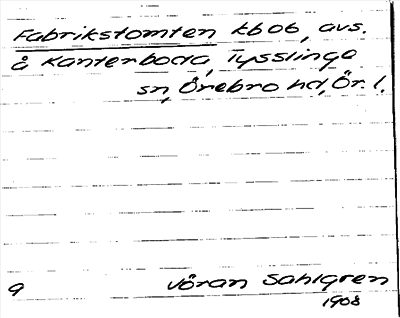 Fabrikstomten kbob, avs.
å Kanterboda, Tysslinge
sn, Örebro hd, Ör. l.
9 Jöran Sahlgren
1908